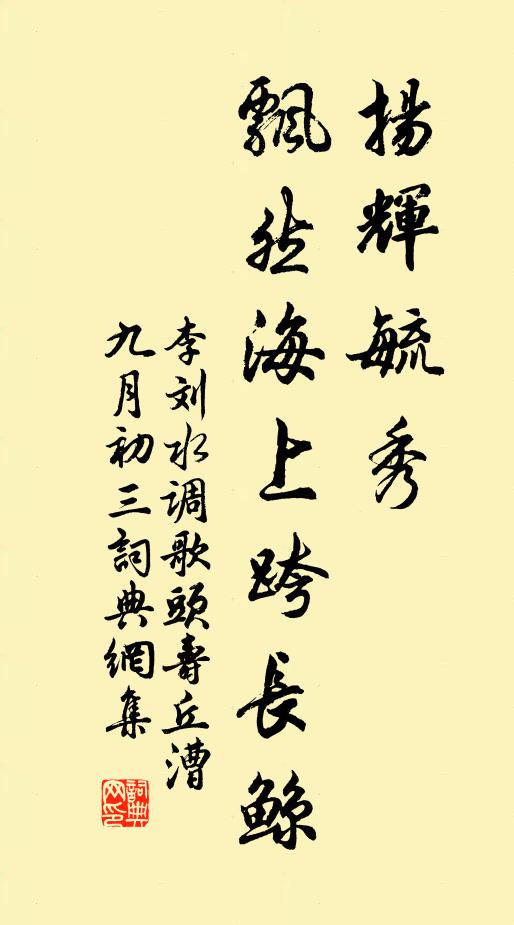 揚輝毓秀
飄然海上跨長鯨
李刘水调歌頭壽丘漕
九月初三詞典網集
詞典网印